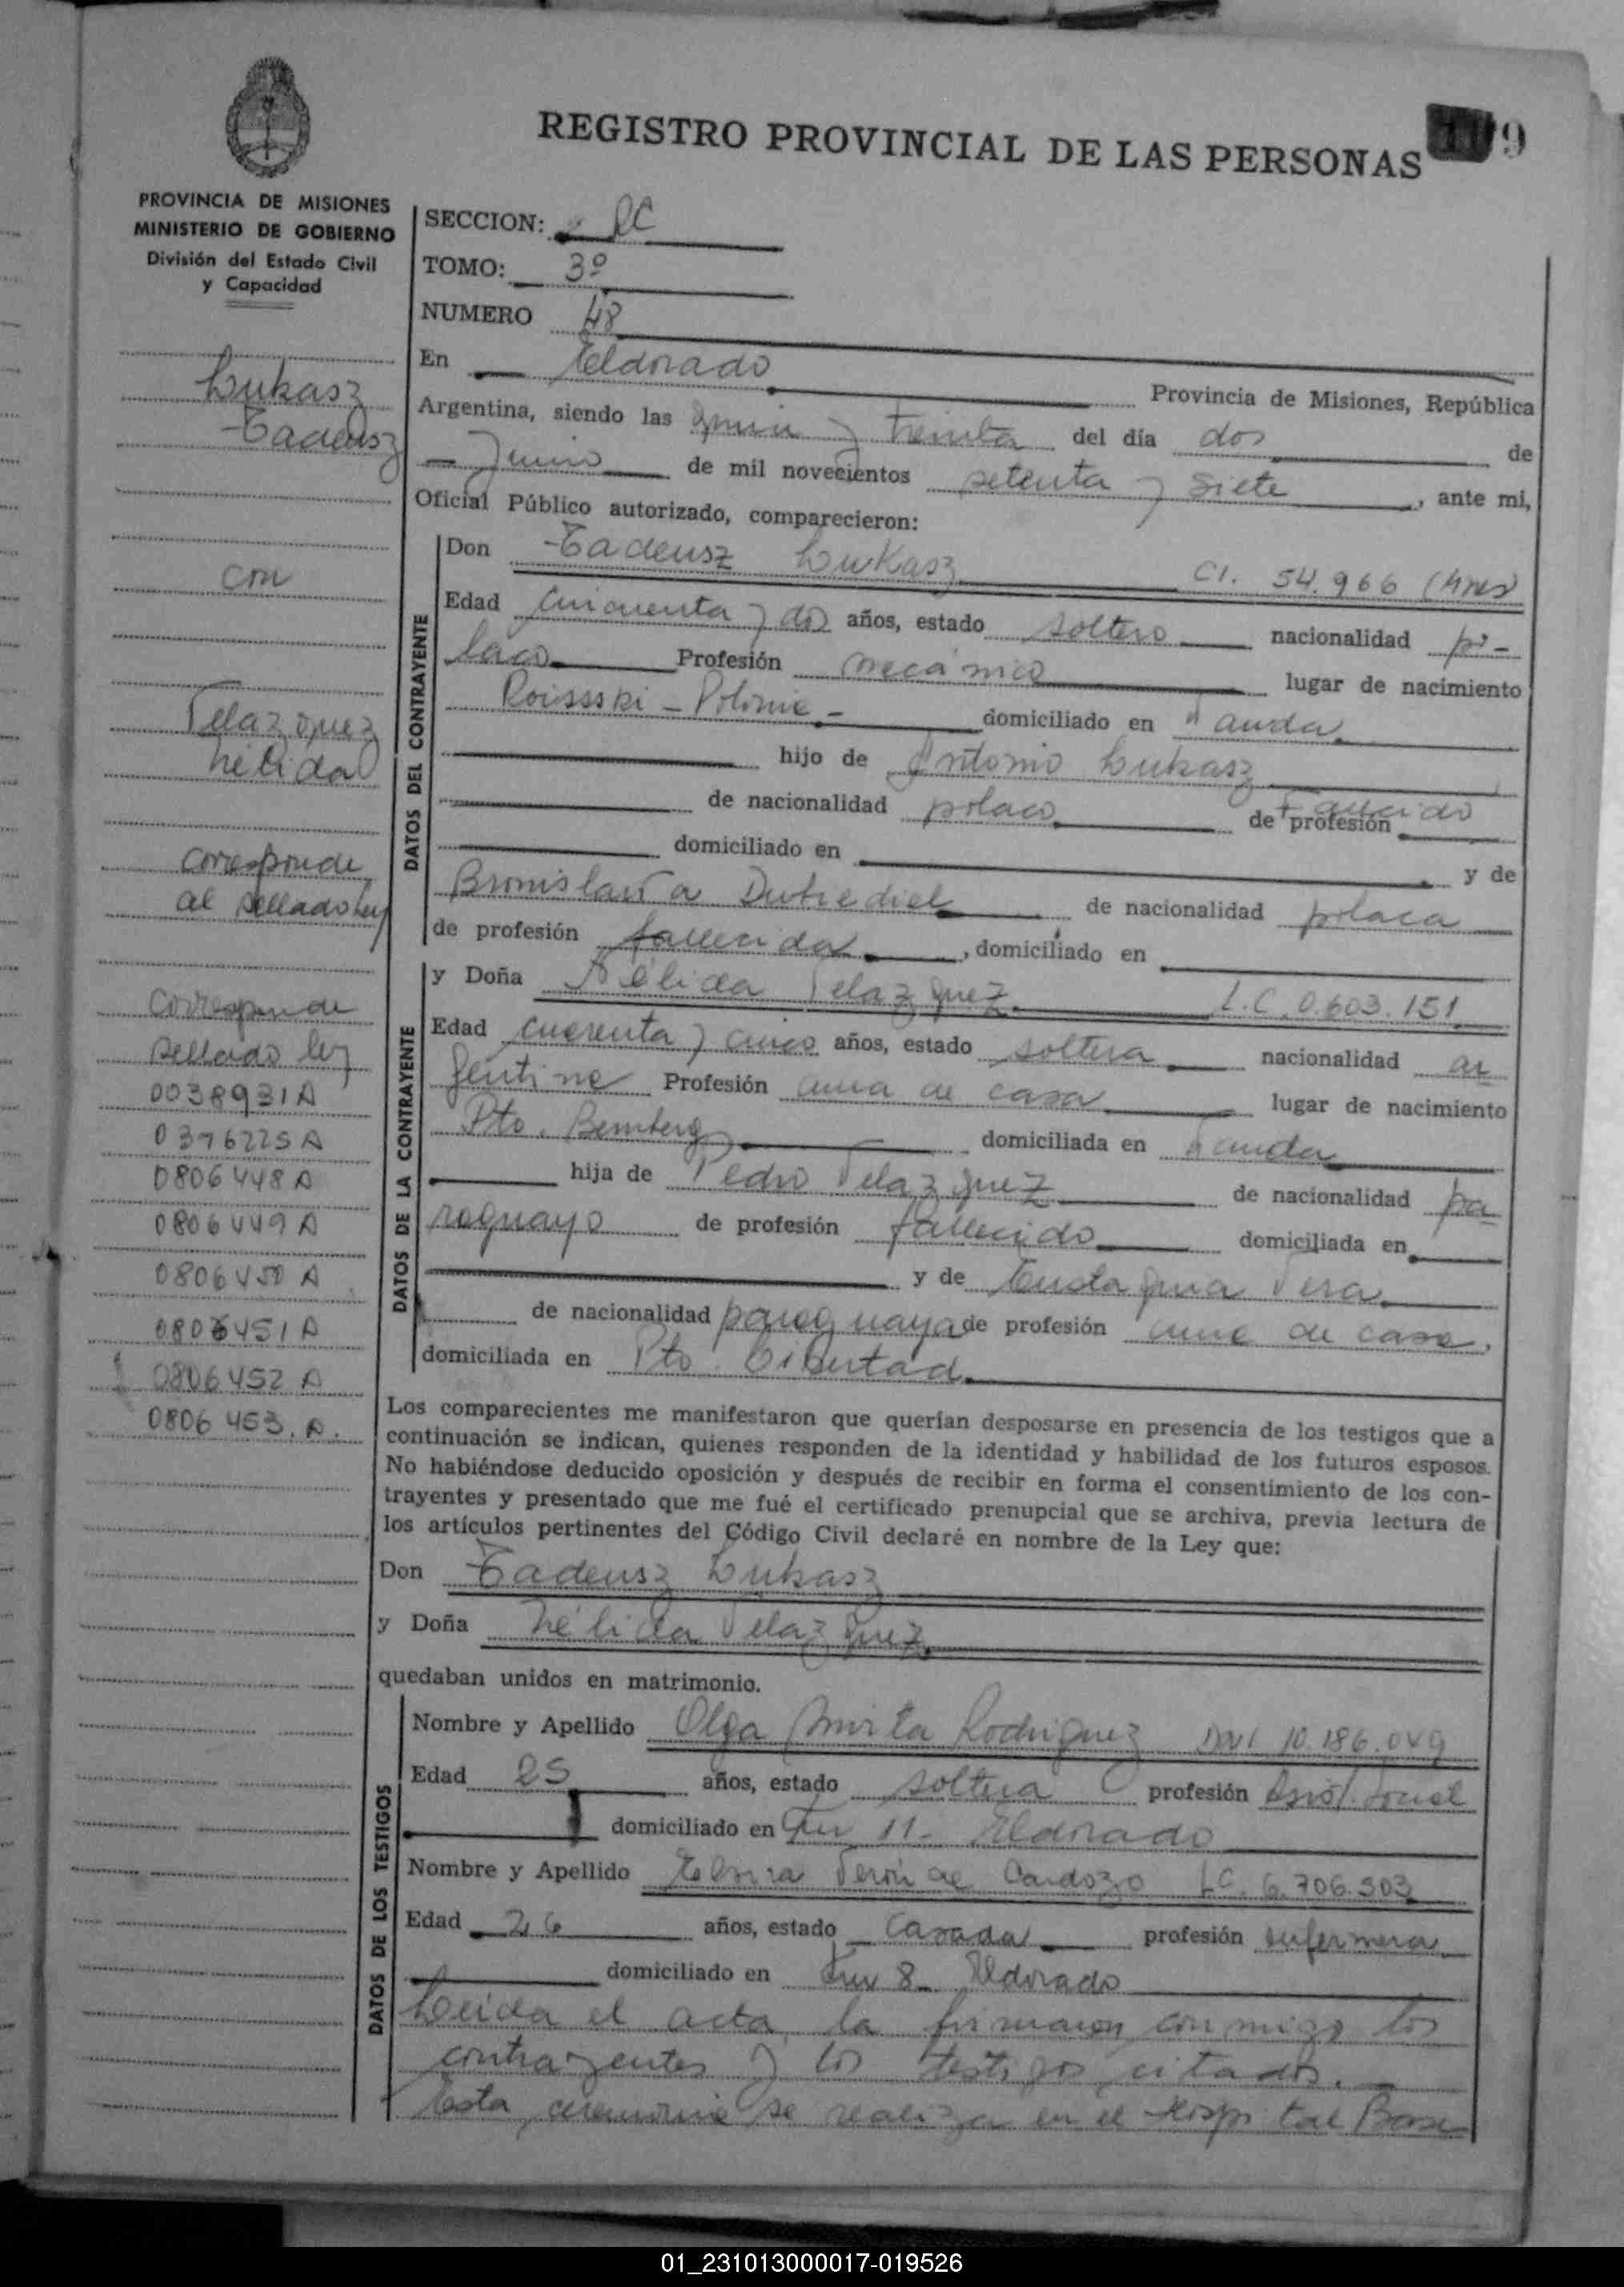 REGISTRO PROVINCIAL DE LAS PERSONAS 9
PROVINCIA DE MISIONES
MINISTERIO DE GOBIERNO
División del Estado Civil
y Capacidad
Lukasz
Tadeusz
con
Velazquez
Nélida
corresponde
al sellado ley
corresponde
sellado ley
0038931A
0376225A
0806448A
0806449A
0806450A
0806451A
0806452A
0806453.A.
SECCION:
TOMO: 3º
NUMERO 48
En Eldorado Provincia de Misiones, República
Argentina, siendo las y treinta del día dos de
Junio de mil novecientos setenta y siete, ante mi,
Oficial Público autorizado, comparecieron:
DATOS DEL CONTRAYENTE
Don Tadeusz Lukasz CI. 54.966 (Mnes)
Edad cincuenta y dos años, estado soltero nacionalidad po-
laco Profesión mecánico lugar de nacimiento
Polonia - domiciliado en Wanda
hijo de Antonio Lukasz
de nacionalidad polaco de profesión Fallecido
domiciliado en y de
Bronislawa de nacionalidad polaca
de profesión fallecida, domiciliado en
DATOS DE LA CONTRAYENTE
y Doña Nélida Velazquez L.C. 0.603.151
Edad cuarenta y cinco años, estado soltera nacionalidad ar
gentina Profesión ama de casa lugar de nacimiento
Pto. Bemberg domiciliada en Wanda
hija de Pedro Velazquez de nacionalidad pa
raguayo de profesión fallecido domiciliada en
y de Eustaquia Vera
de nacionalidad paraguaya de profesión ama de casa,
domiciliada en Pto. Libertad
Los comparecientes me manifestaron que querían desposarse en presencia de los testigos que a
continuación se indican, quienes responden de la identidad y habilidad de los futuros esposos.
No habiéndose deducido oposición y después de recibir en forma el consentimiento de los con-
trayentes y presentado que me fué el certificado prenupcial que se archiva, previa lectura de
los artículos pertinentes del Código Civil declaré en nombre de la Ley que:
Don Tadeusz Lukasz
y Doña Nélida Velazquez
quedaban unidos en matrimonio.
DATOS DE LOS TESTIGOS
Nombre y Apellido Olga Mirta Rodriguez DNI 10.186.049
Edad 25 años, estado soltera profesión Asist. Social
domiciliado en Km 11- Eldorado
Nombre y Apellido de Cardozo LC. 6.706.503
Edad 26 años, estado casada profesión enfermera
domiciliado en Km 8 Eldorado
Leida el acta, la firmaron conmigo los
contrayentes y los testigos citados.
Esta ceremonia se realiza en el Hospital Base
01_231013000017-019526